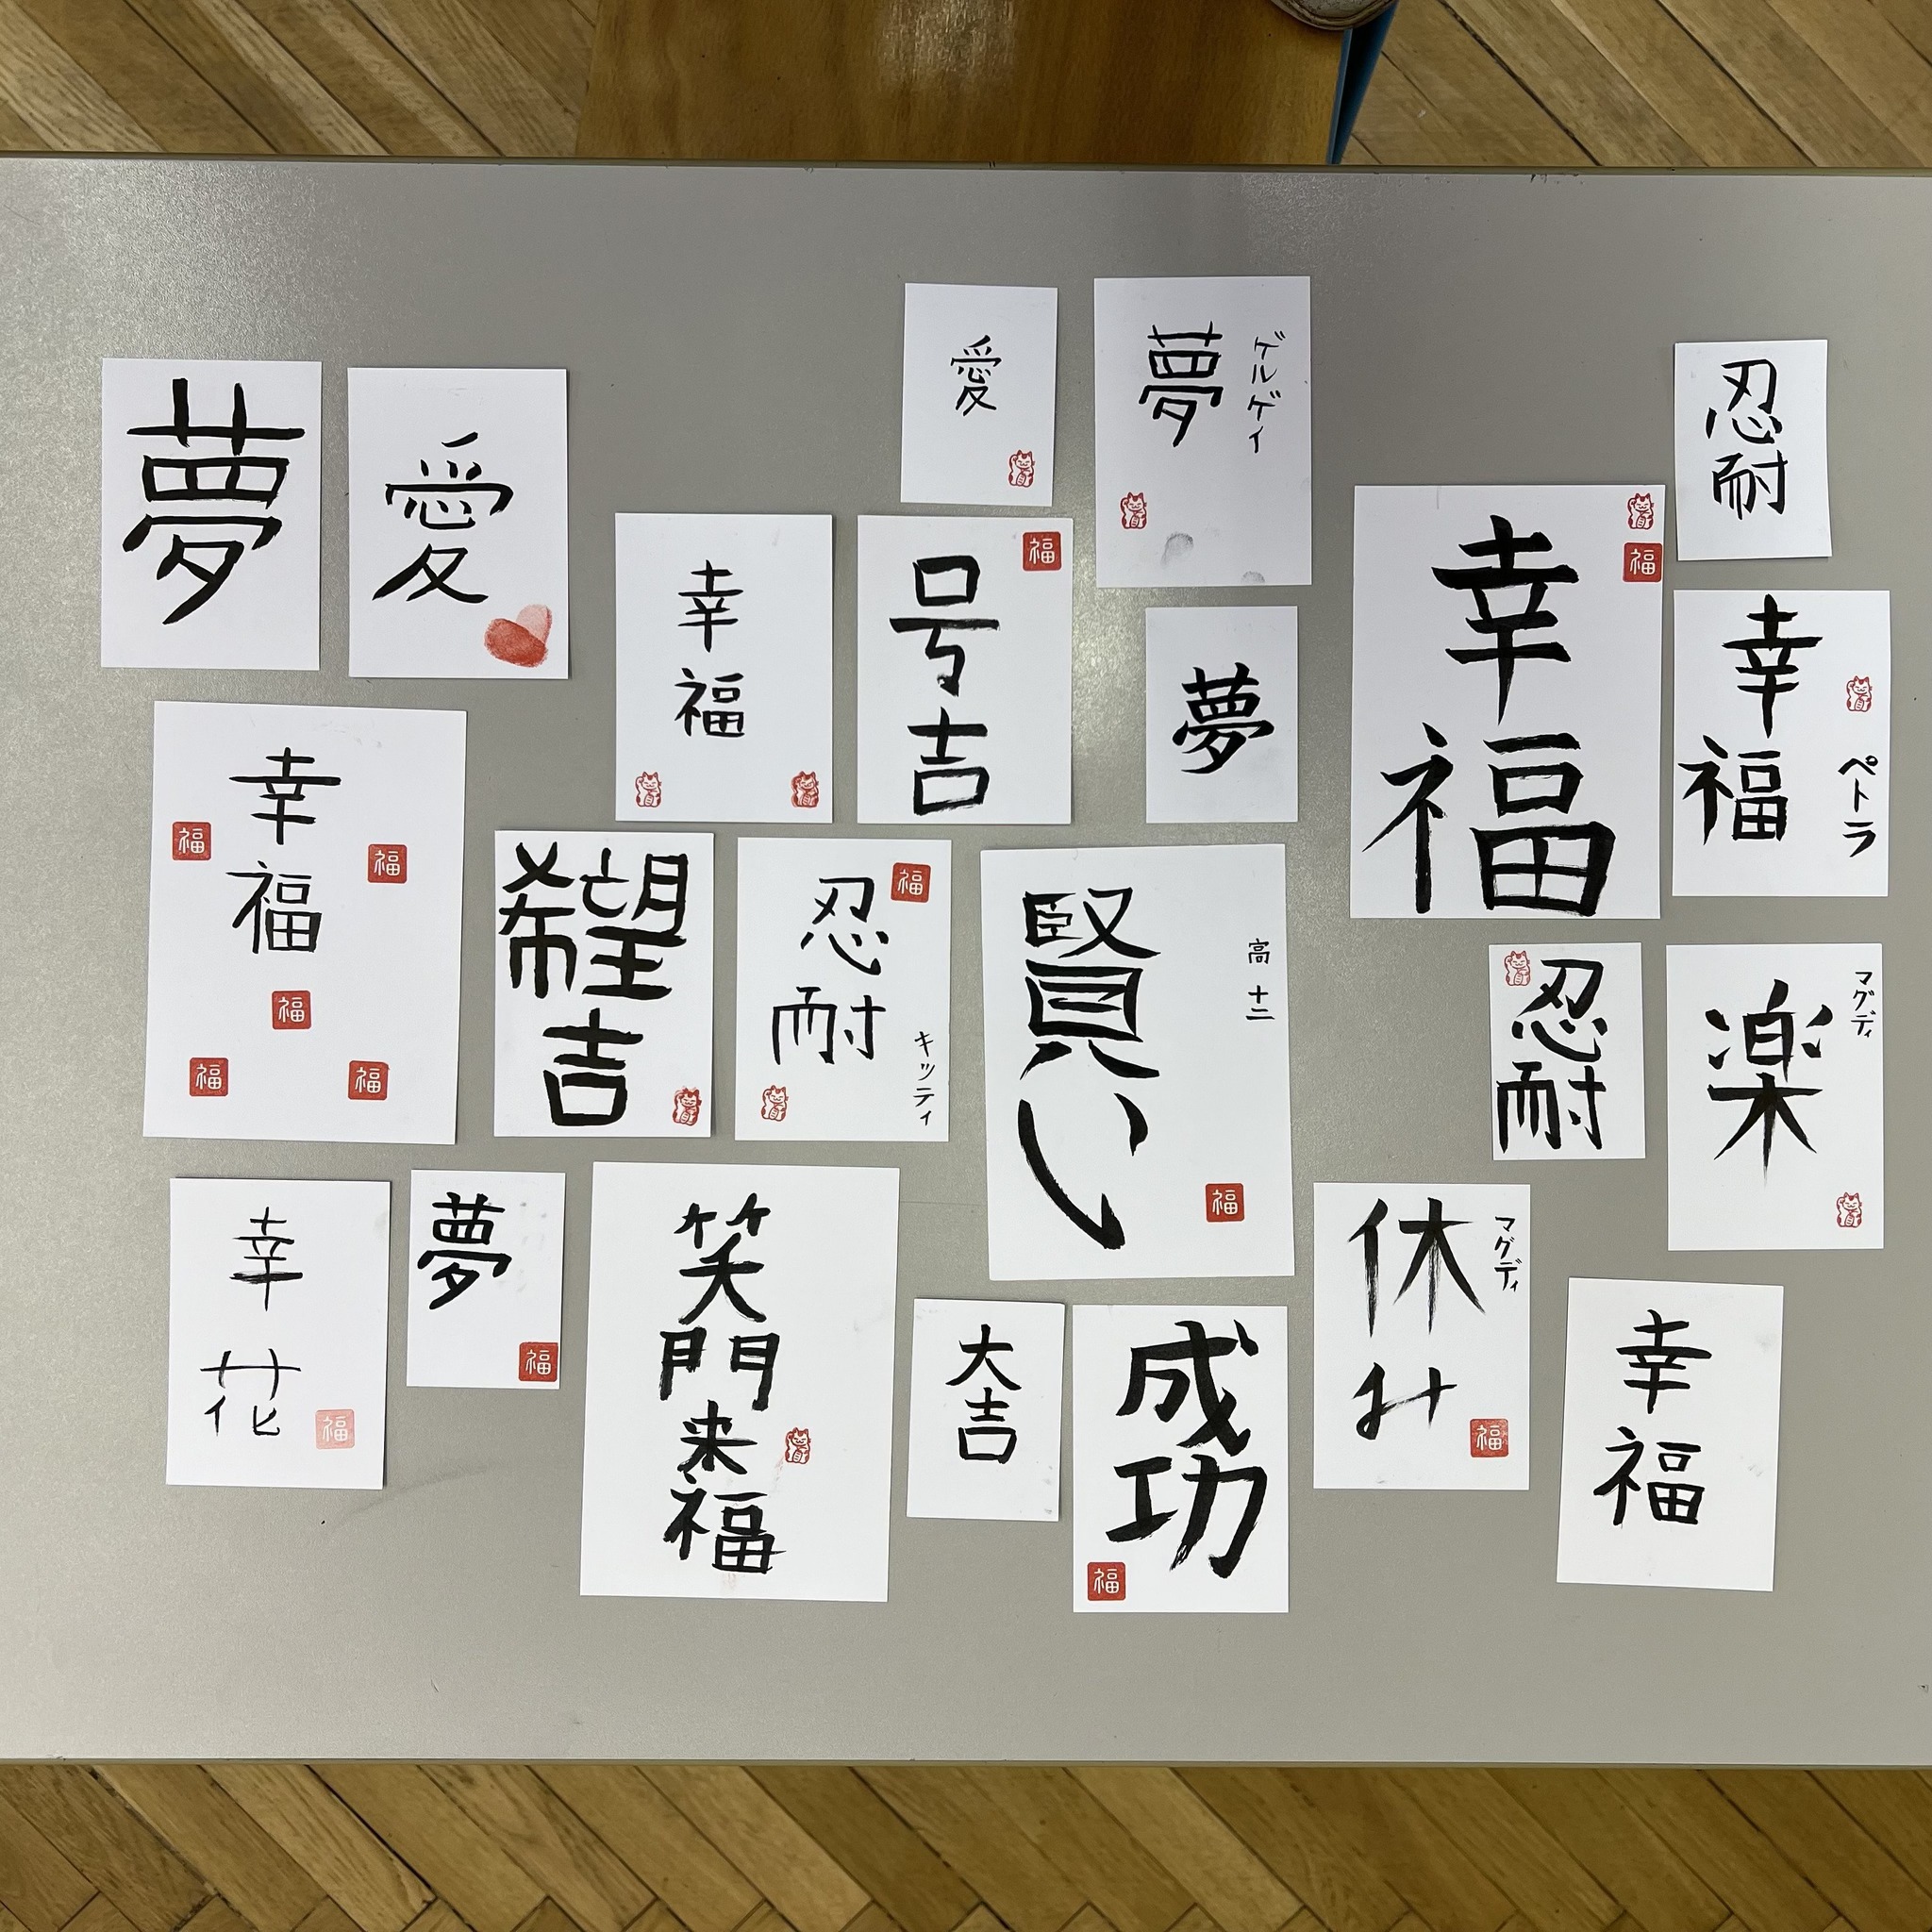 愛
夢
ゲルゲイ
忍耐
夢
愛
幸福
号吉
福
夢
幸福
福
幸福
ペトラ
幸福
福
福
福
福
福
希望
吉
忍耐
福
キッティ
賢い
高十二
福
忍耐
楽
マグディ
幸花
福
夢
福
笑門来福
大吉
成功
福
休み
マグディ
福
幸福